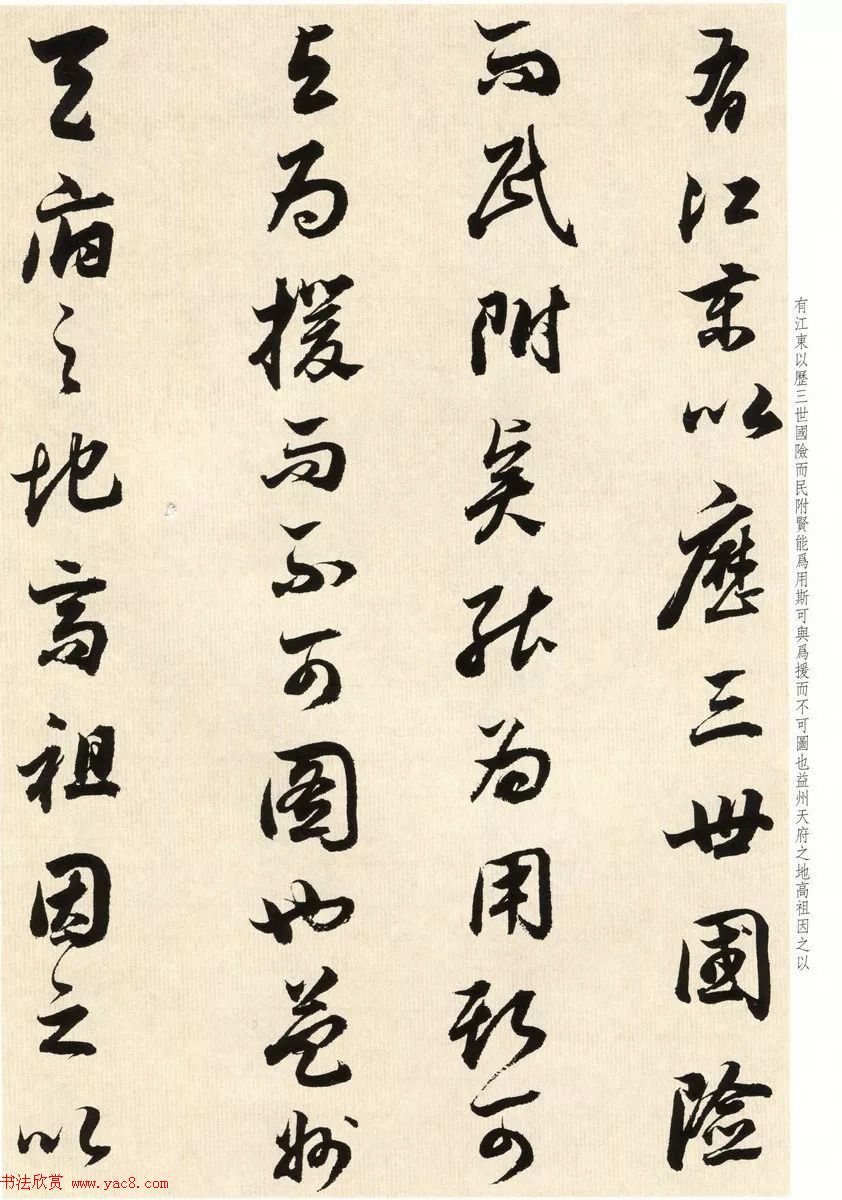 有江東以歷三世國險
而民附賢能為用斯可
与為援而不可圖也益州
天府之地高祖因之以
有江東以歷三世國險而民附賢能爲用斯可與爲援而不可圖也益州天府之地高祖因之以
书法欣赏 www.yac8.com